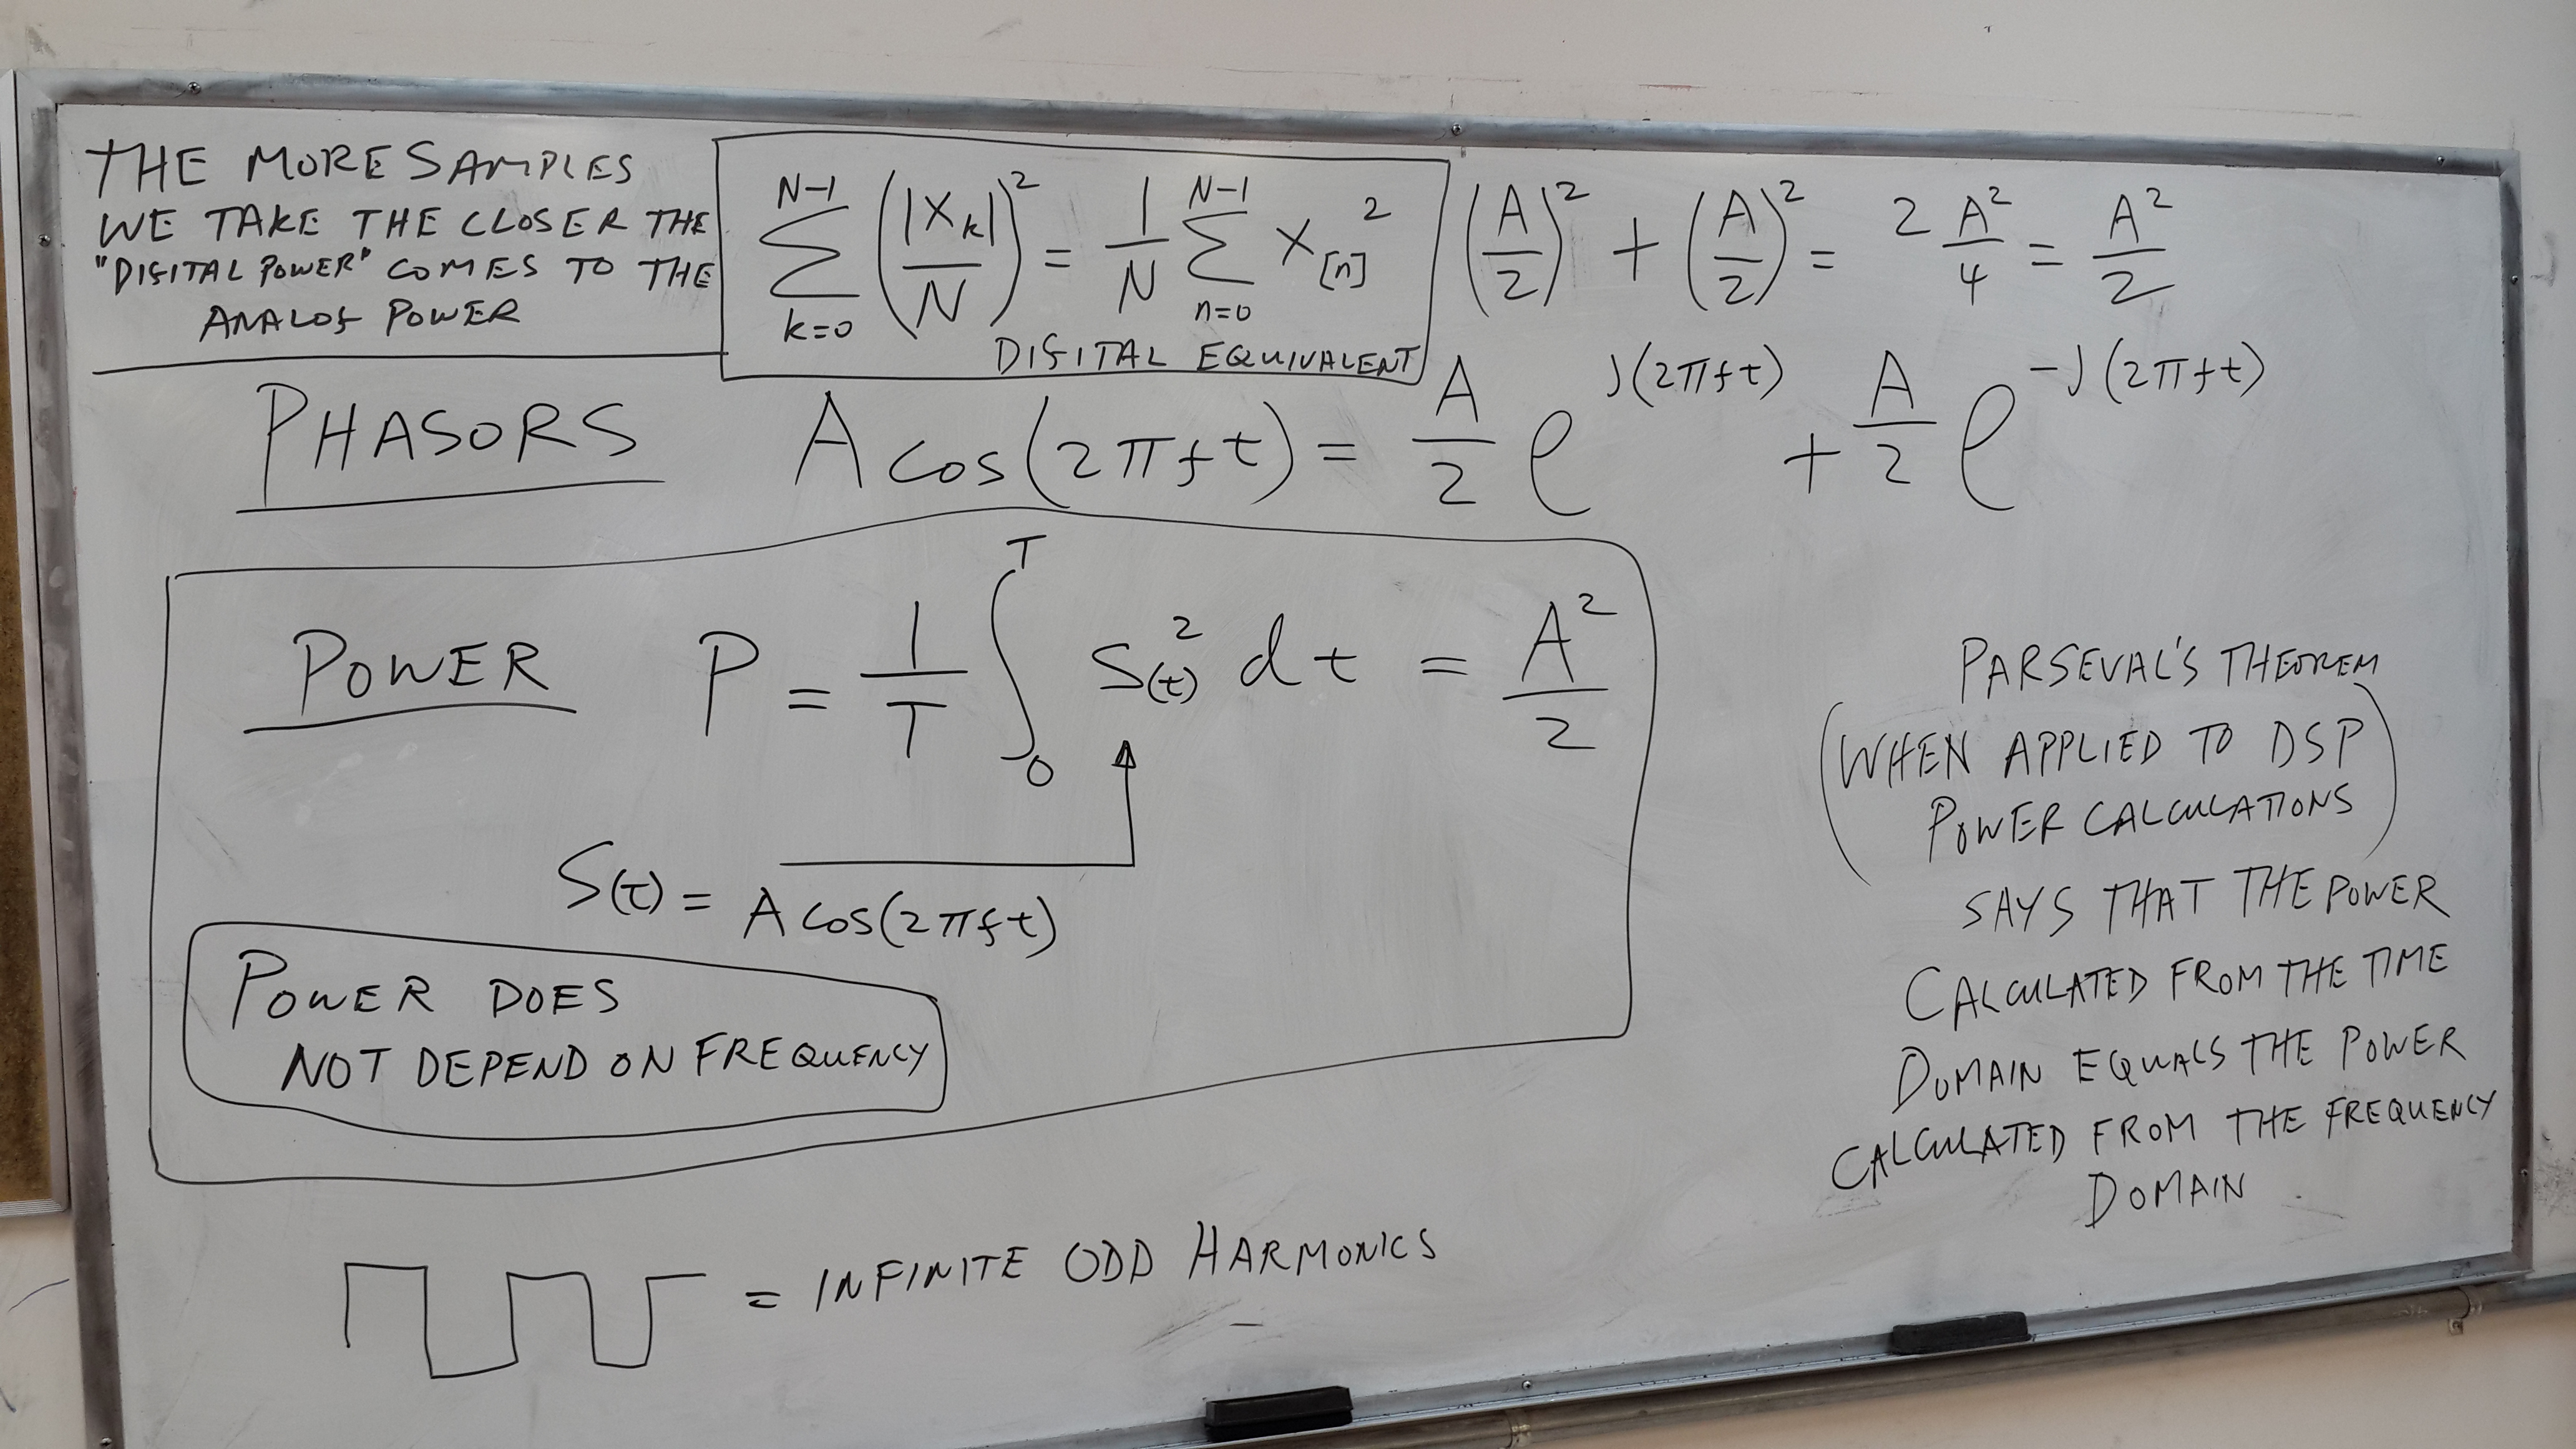 THE MORE SAMPLES
WE TAKE THE CLOSER THE
"DIGITAL POWER" COMES TO THE
ANALOG POWER
N-1 ∑ k=0 (|X_k|/N)² = 1/N N-1 ∑ n=0 X[n]²
DIGITAL EQUIVALENT
(A/2)² + (A/2)² = 2 A²/4 = A²/2
PHASORS A cos(2πft) = A/2 e^{J(2πft)} + A/2 e^{-J(2πft)}
POWER P = 1/T ∫₀ᵀ S²(t) dt = A²/2
S(t) = A cos(2πft)
POWER DOES
NOT DEPEND ON FREQUENCY
= INFINITE ODD HARMONICS
PARSEVAL'S THEOREM
(WHEN APPLIED TO DSP
POWER CALCULATIONS)
SAYS THAT THE POWER
CALCULATED FROM THE TIME
DOMAIN EQUALS THE POWER
CALCULATED FROM THE FREQUENCY
DOMAIN